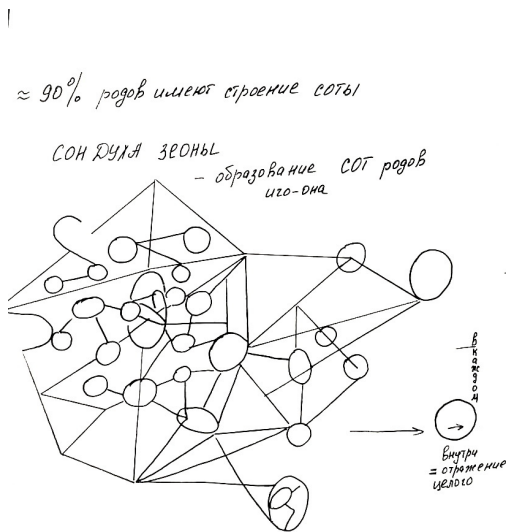 ≈ 90% родов имеют строение соты
СОН ДУХА ЗЕОНЫ
- образование СОТ родов
иго-она
в каждом
внутри
= отражение
целого